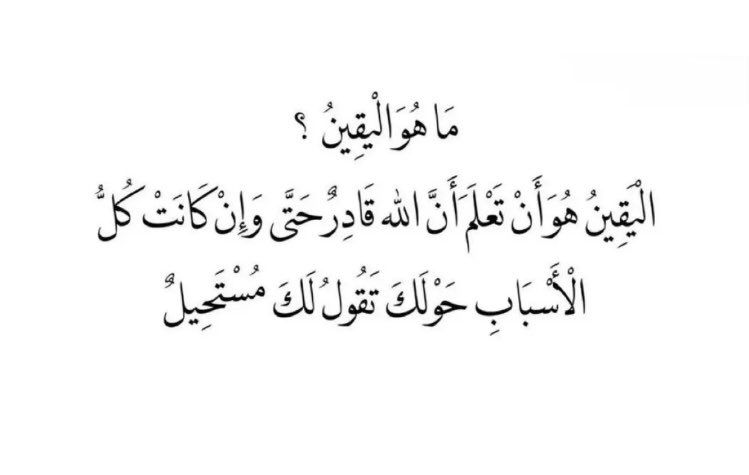 مَا هُوَ الْيَقِينُ ؟
الْيَقِينُ هُوَ أَنْ تَعْلَمَ أَنَّ الله قَادِرٌ حَتَّى وَإِنْ كَانَتْ كُلُّ
الْأَسْبَابِ حَوْلَكَ تَقُولُ لَكَ مُسْتَحِيلٌ